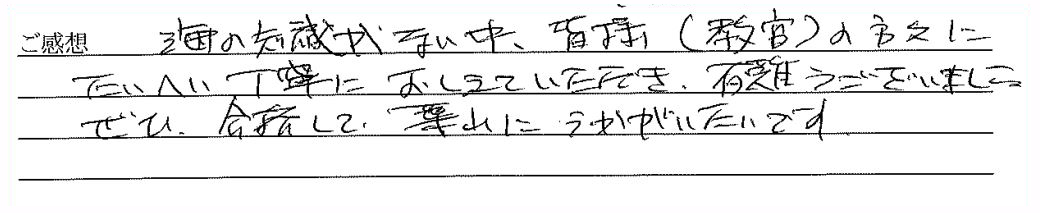 ご感想 海の知識がない中、皆様(教官)の方々に
たいへい丁寧におしえていただき、有難うございました
ぜひ、合格して、乗りにうかがいたいです